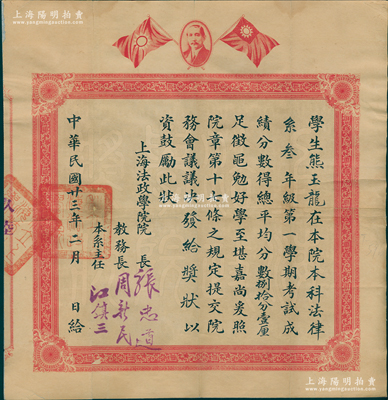 上海陽明拍卖
学生熊玉龍在本院本科法律
系叁年級第一學期考試成
績分數得總平均分數捌拾分壹厘
足徵黽勉好學至堪嘉尚爰照
院章第十七條之規定提交院
務會議議决發給獎狀以
資鼓勵此狀
上海法政學院院長張忠道
教務長周新民
本系主任江鎮三
中華民國廿三年二月 日給
上海陽明拍卖